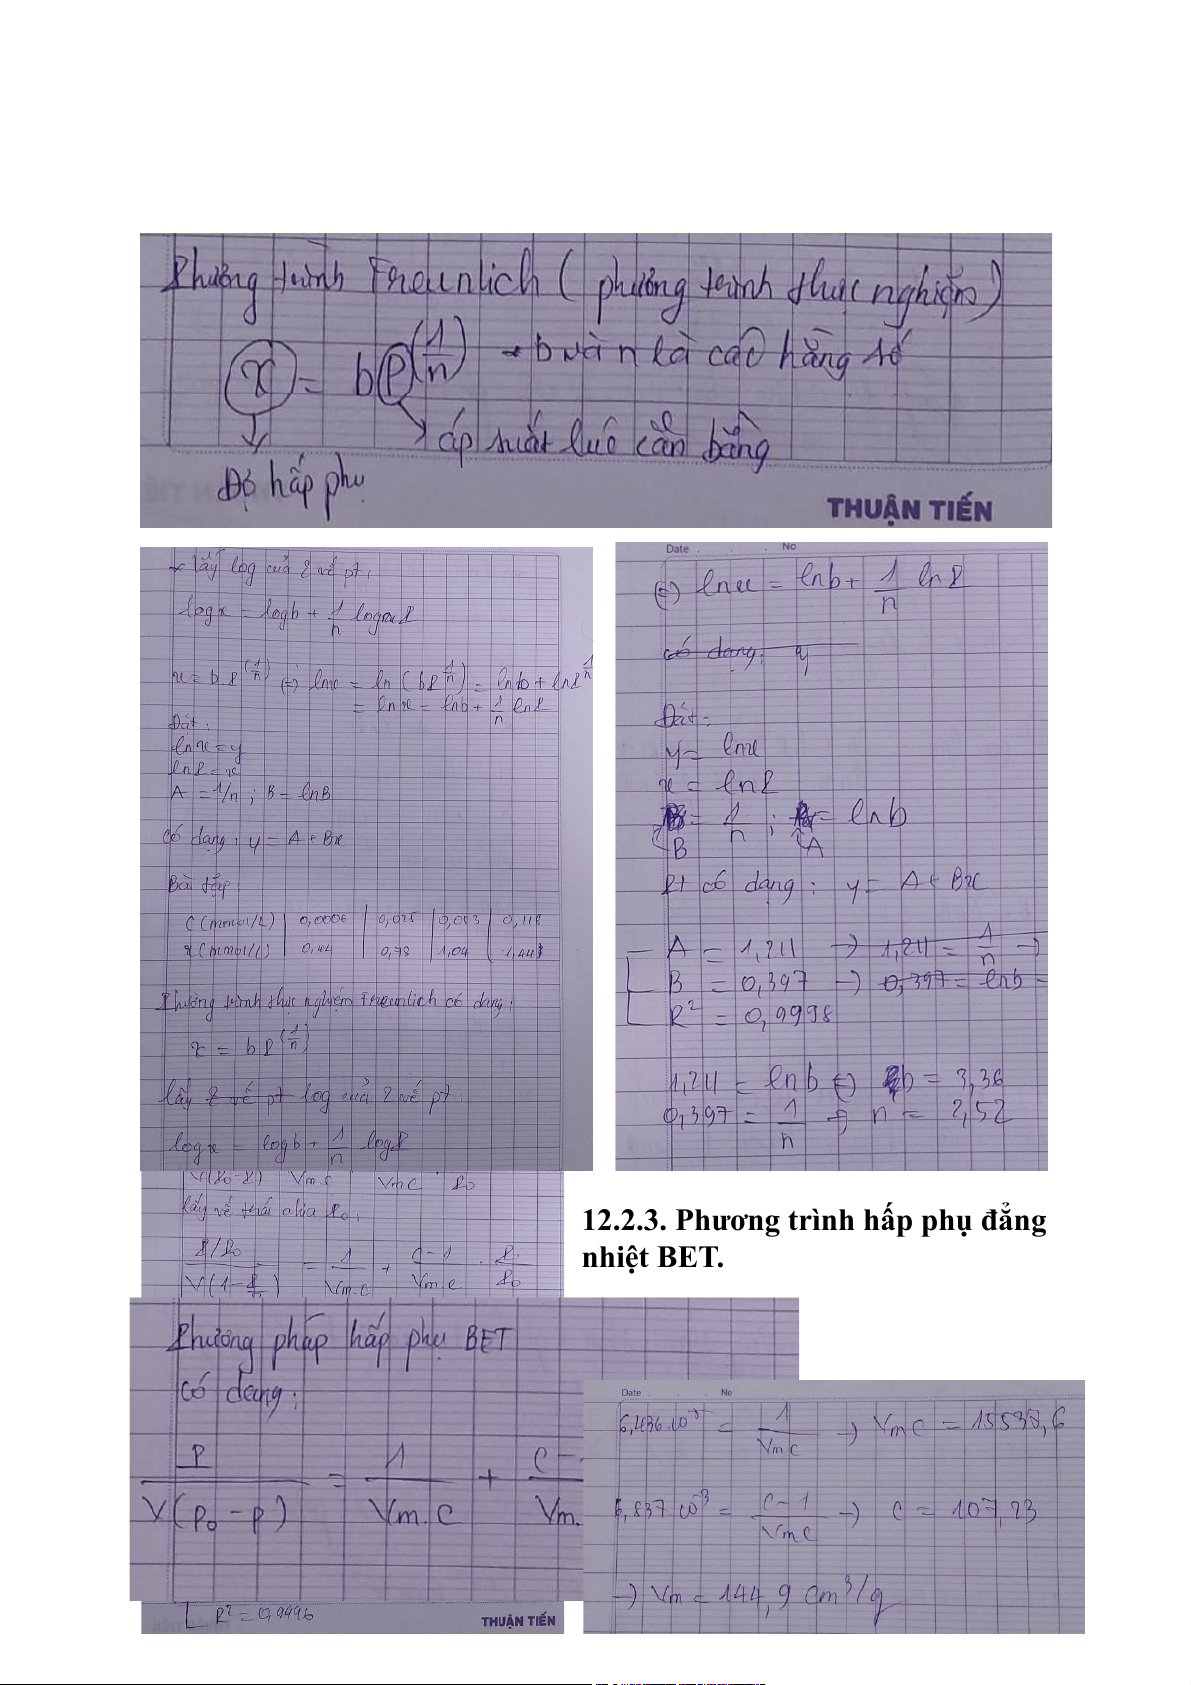 Phương trình Freunlich ( phương trình thực nghiệm)
x = bP^(1/n) → b và n là các hằng số
áp suất lúc cân bằng
Độ hấp phụ
THUẬN TIẾN
+ lấy log của 2 vế pt:
logx = logb + 1/n log P
x = b.P^(1/n) (=) lnx = ln (bP^(1/n)) = lnb + lnP^(1/n)
= lnx = lnb + 1/n lnP
Đặt:
lnx = y
lnP = x
A = 1/n ; B = lnB
có dạng: y = A + Bx
Bài tập:
C (mmol/L) | 0,0006 | 0,025 | 0,053 | 0,118
x (mmol/L) | 0,44 | 0,78 | 1,04 | 1,44
Phương trình thực nghiệm Freunlich có dạng:
x = bP^(1/n)
lấy 2 vế pt log của 2 vế pt:
logx = logb + 1/n logP
Date No
(=) lnx = lnb + 1/n lnP
có dạng: y
Đặt:
y = lnx
x = lnP
= 1/n ; = lnb
B A
Pt có dạng: y = A + Bx
A = 1,211 → 1,211 = 1/n →
B = 0,397 → 0,397 = lnb =
R² = 0,9998
1,211 = lnb (=) b = 3,36
0,397 = 1/n → n = 2,52
V(P₀-P) Vm.C VmC P₀
lấy vế trái chia P₀:
P/P₀ / V(1-P/ ) = 1/Vm.C + C-1/Vm.C . P/P₀
12.2.3. Phương trình hấp phụ đẳng
nhiệt BET.
Phương pháp hấp phụ BET
có dạng:
P / V(P₀-P) = 1/Vm.C + C- / Vm.
R² = 0,9996
THUẬN TIẾN
Date No
6,436.10⁻⁵ = 1/VmC → VmC = 15537,6
6,837.10⁻³ = C-1/VmC → C = 107,23
→ Vm = 144,9 cm³/g